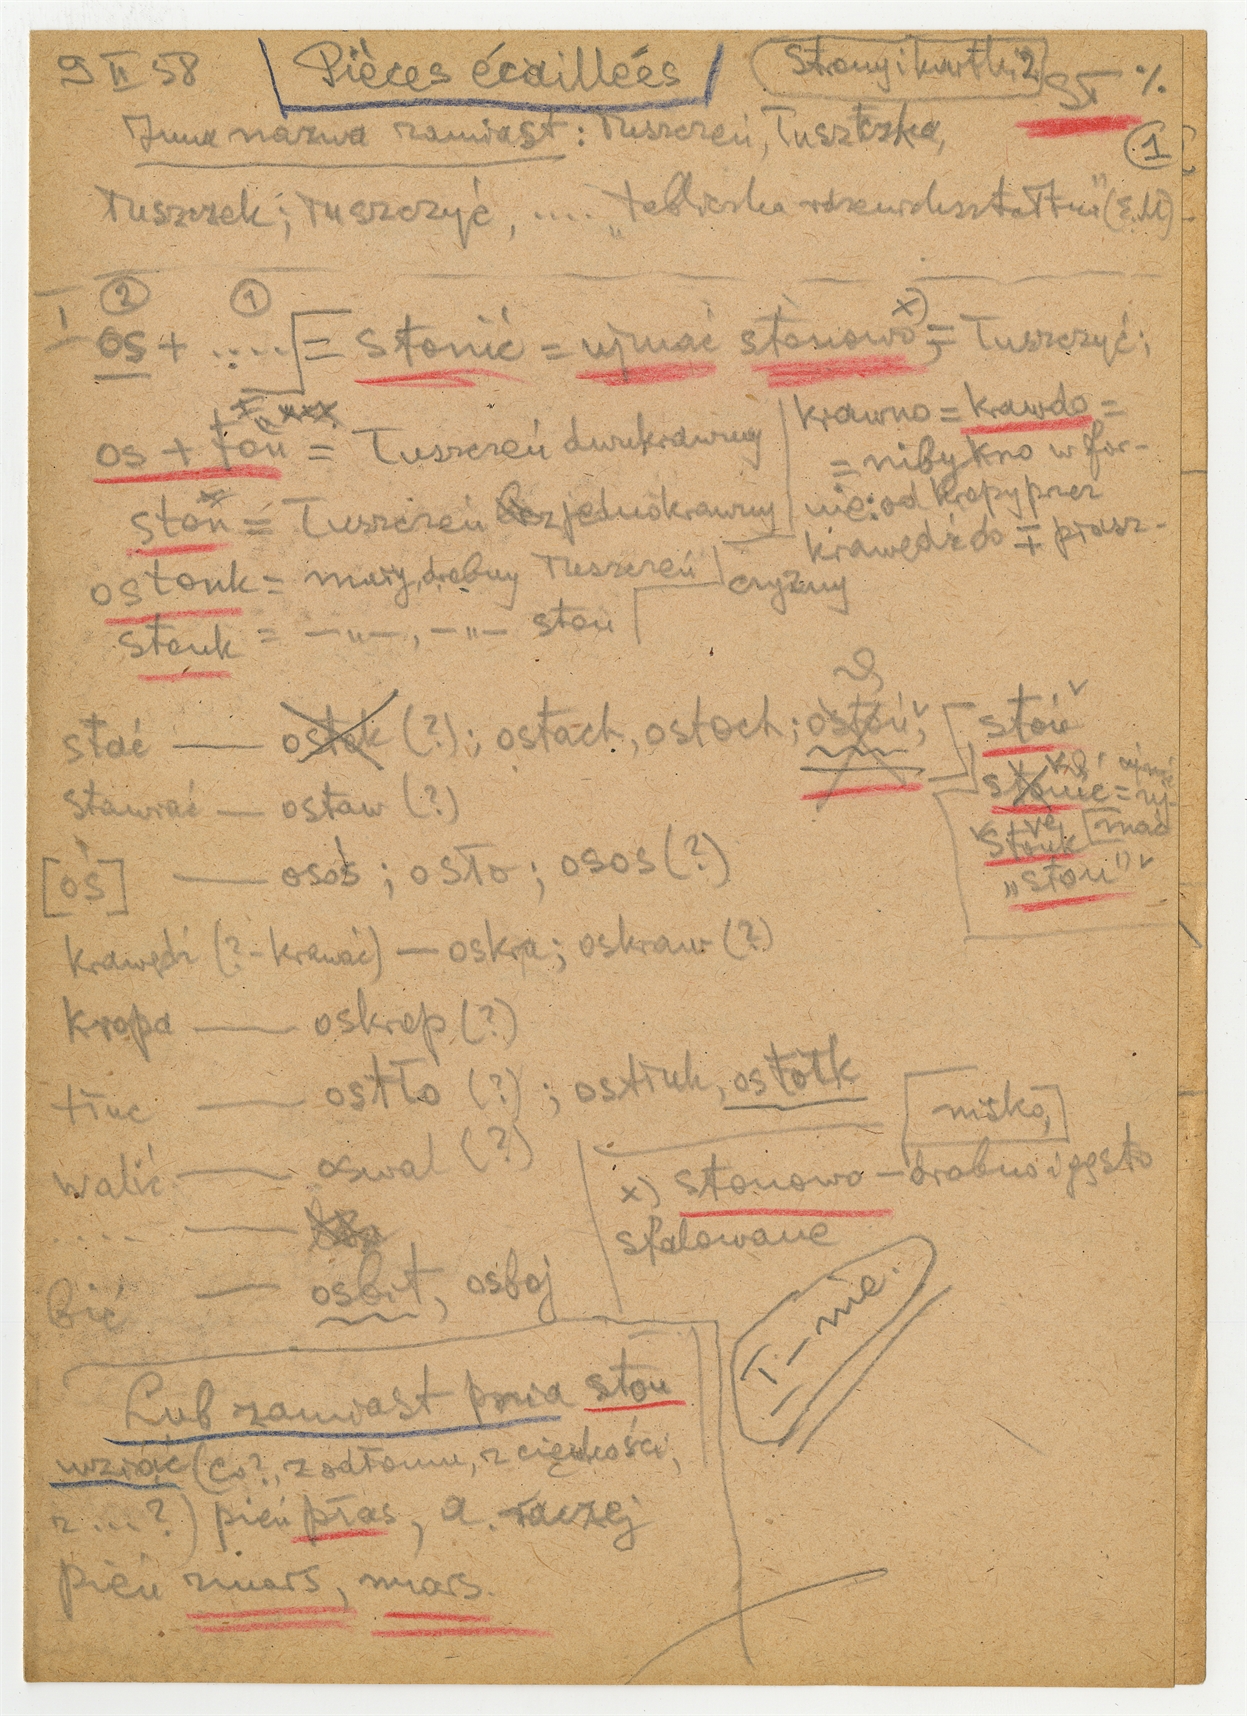 9 II 58 Pièces écaillées Strony i kartki 2
ST %
Inna nazwa zamiast: Łuszczeń, Łuszczka, ①
Łuszczek; Łuszczyć, .... „tabliczka rdzeniokształtna" (E.M)
② ①
I os + .... = słonić = ujmać słonowo x) = Łuszczyć;
os + łoń = Łuszczeń dwukrawny
słoń = Łuszczeń jednokrawny
osłonk = mały, drobny Łuszczeń
słonk = —„—, —„— słoń
krawno = krawdo =
= niby kno w for-
mie: od kropy przez
krawędź do ∓ płasz-
czyzny
stać — ostok (?); ostach, ostoch; ostoń,
stawiać — ostaw (?)
[oś] — osoś; osto; osos (?)
krawędź (?-krawać) — oskra; oskraw (?)
kropa — oskrop (?)
tłuc — ostło (?); ostłuk, ostołk
walić — oswal (?)
..... —
bić — osbit, osboj
słoń
słonić = uj-
[mać
słonk
„słoń"
nisko,
x) słonowo — drobno i gęsto
sfalowane
T — nie.
Lub zamiast pnia słoń
wziąć (co?, z odłamu, z cienkości,
z ...?) pień płas, a raczej
pień zmars, mars.